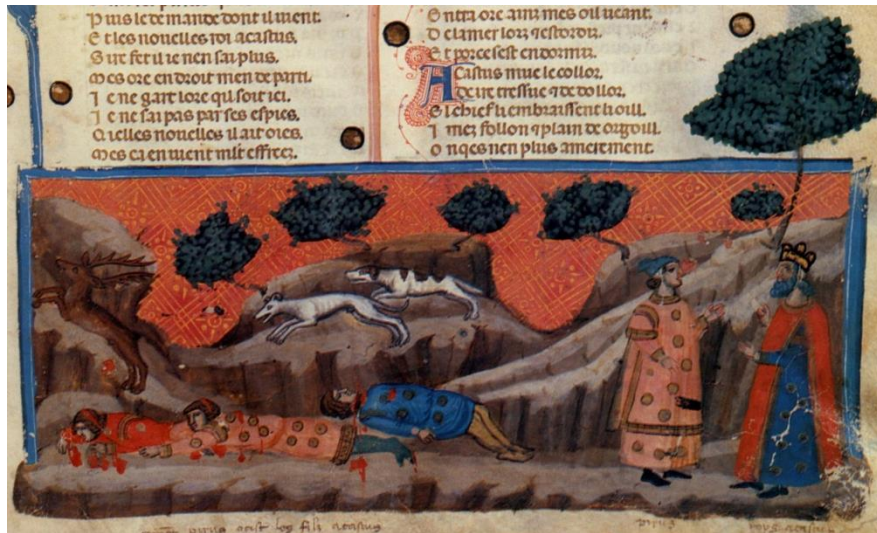 Puis le demande dont il uient.
Et les nouelles roi acastus.
Sire fet il ie nen sai plus.
Mes ore en droit men de parti.
Ie ne gart lore quil soit ici.
Ie ne sai pas par ses espies.
Quielles nouelles il ait oies.
Mes ca en uient mlt effreez.
Entra ore ainz mes oil ueant.
De clamer lor
Et por ce sest en dormir.
Acastus mue le collor.
De ire tressue de dollor.
El chief li embraissent li oill.
I mez follon plain de orgoill.
Onqes nen plus amerement.
pirus ocist los filz acastus
pirus
roys acastus